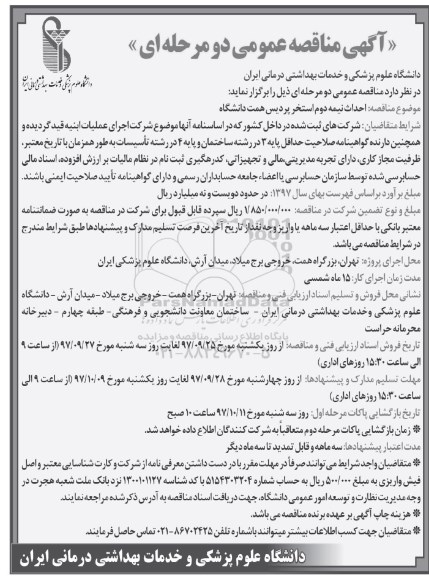 «آگهی مناقصه عمومی دو مرحله ای»
دانشگاه علوم پزشکی و خدمات بهداشتی درمانی ایران
در نظر دارد مناقصه عمومی دو مرحله ای ذیل را برگزار نماید:
موضوع مناقصه: احداث نیمه دوم استخر پردیس همت دانشگاه
شرایط متقاضیان: شرکت های ثبت شده در داخل کشور که در اساسنامه آنها موضوع شرکت اجرای عملیات ابنیه قید گردیده و
همچنین دارنده گواهینامه صلاحیت حداقل پایه ۳ در رشته ساختمان و پایه ۴ در رشته تأسیسات به طور همزمان با تاریخ معتبر،
ظرفیت مجاز کاری، دارای تجربه مدیریتی مالی و تجهیزاتی، کد رهگیری ثبت نام در نظام مالیات بر ارزش افزوده، اسناد مالی
حسابرسی شده توسط سازمان حسابرسی یا اعضاء جامعه حسابداران رسمی و دارای گواهینامه تأیید صلاحیت ایمنی باشند.
مبلغ برآورد براساس فهرست بهای سال ۱۳۹۷: در حدود دویست و نه میلیارد ریال
مبلغ و نوع تضمین شرکت در مناقصه: ۱/۸۵۰/۰۰۰/۰۰۰ ریال سپرده قابل قبول برای شرکت در مناقصه به صورت ضمانتنامه
معتبر بانکی با حداقل اعتبار سه ماهه یا واریز وجه نقد از تاریخ آخرین فرصت تسلیم مدارک و پیشنهادها طبق شرایط مندرج
در شرایط مناقصه می باشد.
محل اجرای پروژه: تهران، بزرگراه همت، خروجی برج میلاد، میدان آرش، دانشگاه علوم پزشکی ایران
مدت زمان اجرای کار: ۱۵ ماه شمسی
نشانی محل فروش و تسلیم اسناد ارزیابی فنی و مناقصه: تهران-بزرگراه همت - خروجی برج میلاد - میدان آرش - دانشگاه
علوم پزشکی و خدمات بهداشتی درمانی ایران - ساختمان معاونت دانشجویی و فرهنگی- طبقه چهارم - دبیرخانه
محرمانه حراست
تاریخ فروش اسناد ارزیابی فنی و مناقصه: از روز یکشنبه مورخ ۹۷/۰۹/۲۵ لغایت روز سه شنبه مورخ ۹۷/۰۹/۲۷ (از ساعت ۹
الی ساعت ۱۵:۳۰ روزهای اداری)
مهلت تسلیم مدارک و پیشنهادها: از روز چهارشنبه مورخ ۹۷/۰۹/۲۸ لغایت روز یکشنبه مورخ ۹۷/۱۰/۰۹ (از ساعت ۹ الی
ساعت ۱۵:۳۰ روزهای اداری)
تاریخ بازگشایی پاکات مرحله اول: روز سه شنبه مورخ ۹۷/۱۰/۱۱ ساعت ۱۰ صبح
* زمان بازگشایی پاکات مرحله دوم متعاقباً به شرکت کنندگان اطلاع داده خواهد شد.
مدت اعتبار پیشنهادها: سه ماهه و قابل تمدید تا سه ماه دیگر
* متقاضیان واجد شرایط می توانند صرفاً در مهلت مقرر با در دست داشتن معرفی نامه از شرکت و کارت شناسایی معتبر و اصل
فیش واریزی به مبلغ ۵۰۰/۰۰۰ ریال به حساب شماره ۵۱۵۴۳۰۳۲۰۴ با کد شناسه ۱۳۰۰۱۰۱۱۲۷ نزد بانک ملت شعبه هجرت در
وجه مدیریت نظارت و توسعه امور عمومی دانشگاه، جهت دریافت اسناد مناقصه به آدرس ذکر شده مراجعه نمایند.
* هزینه چاپ آگهی بر عهده برنده مناقصه می باشد.
* متقاضیان جهت کسب اطلاعات بیشتر میتوانند با شماره تلفن ۸۶۷۰۲۴۲۵-۰۲۱ تماس حاصل فرمایند.
دانشگاه علوم پزشکی و خدمات بهداشتی درمانی ایران